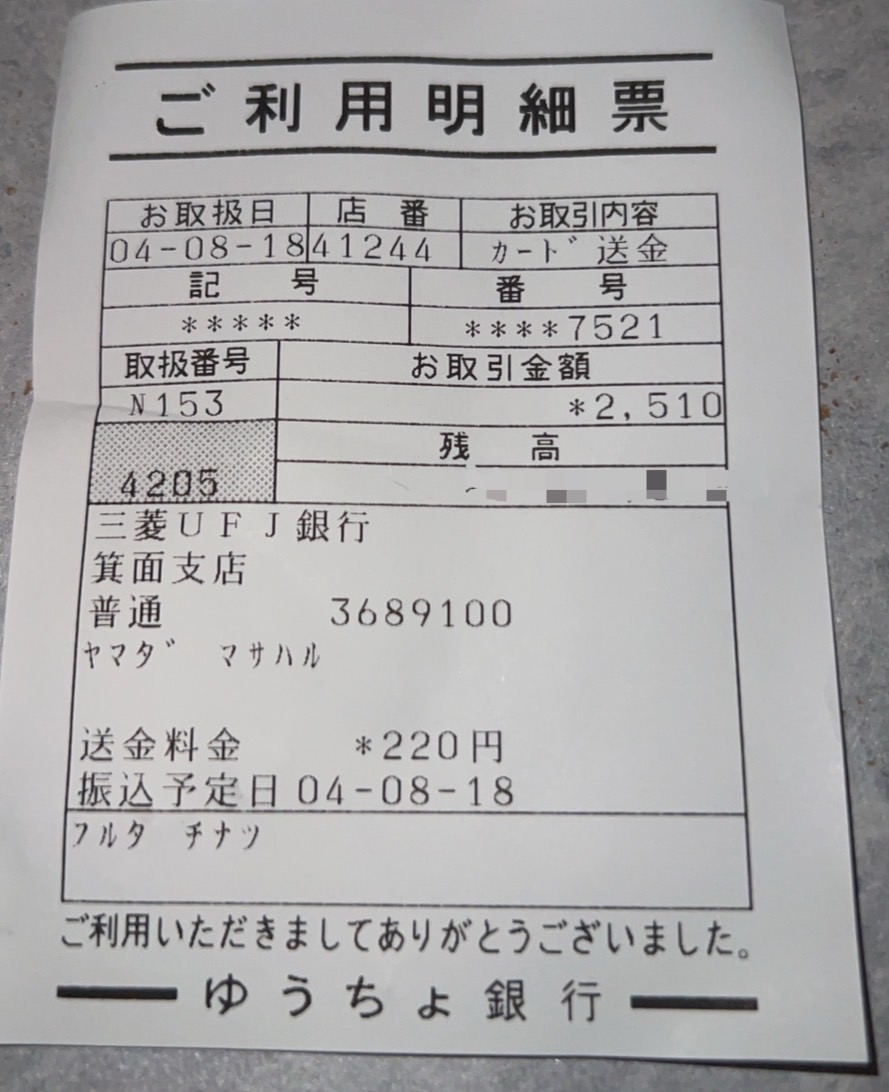 ご利用明細票
お取扱日 店番 お取引内容
04-08-18 41244 ｶｰﾄﾞ送金
記号 番号
***** ****7521
取扱番号 お取引金額
N153 *2,510
残高
4205
三菱ＵＦＪ銀行
箕面支店
普通 3689100
ﾔﾏﾀﾞ ﾏｻﾊﾙ
送金料金 *220円
振込予定日 04-08-18
ﾌﾙﾀ ﾁﾅﾂ
ご利用いただきましてありがとうございました。
ゆうちょ銀行